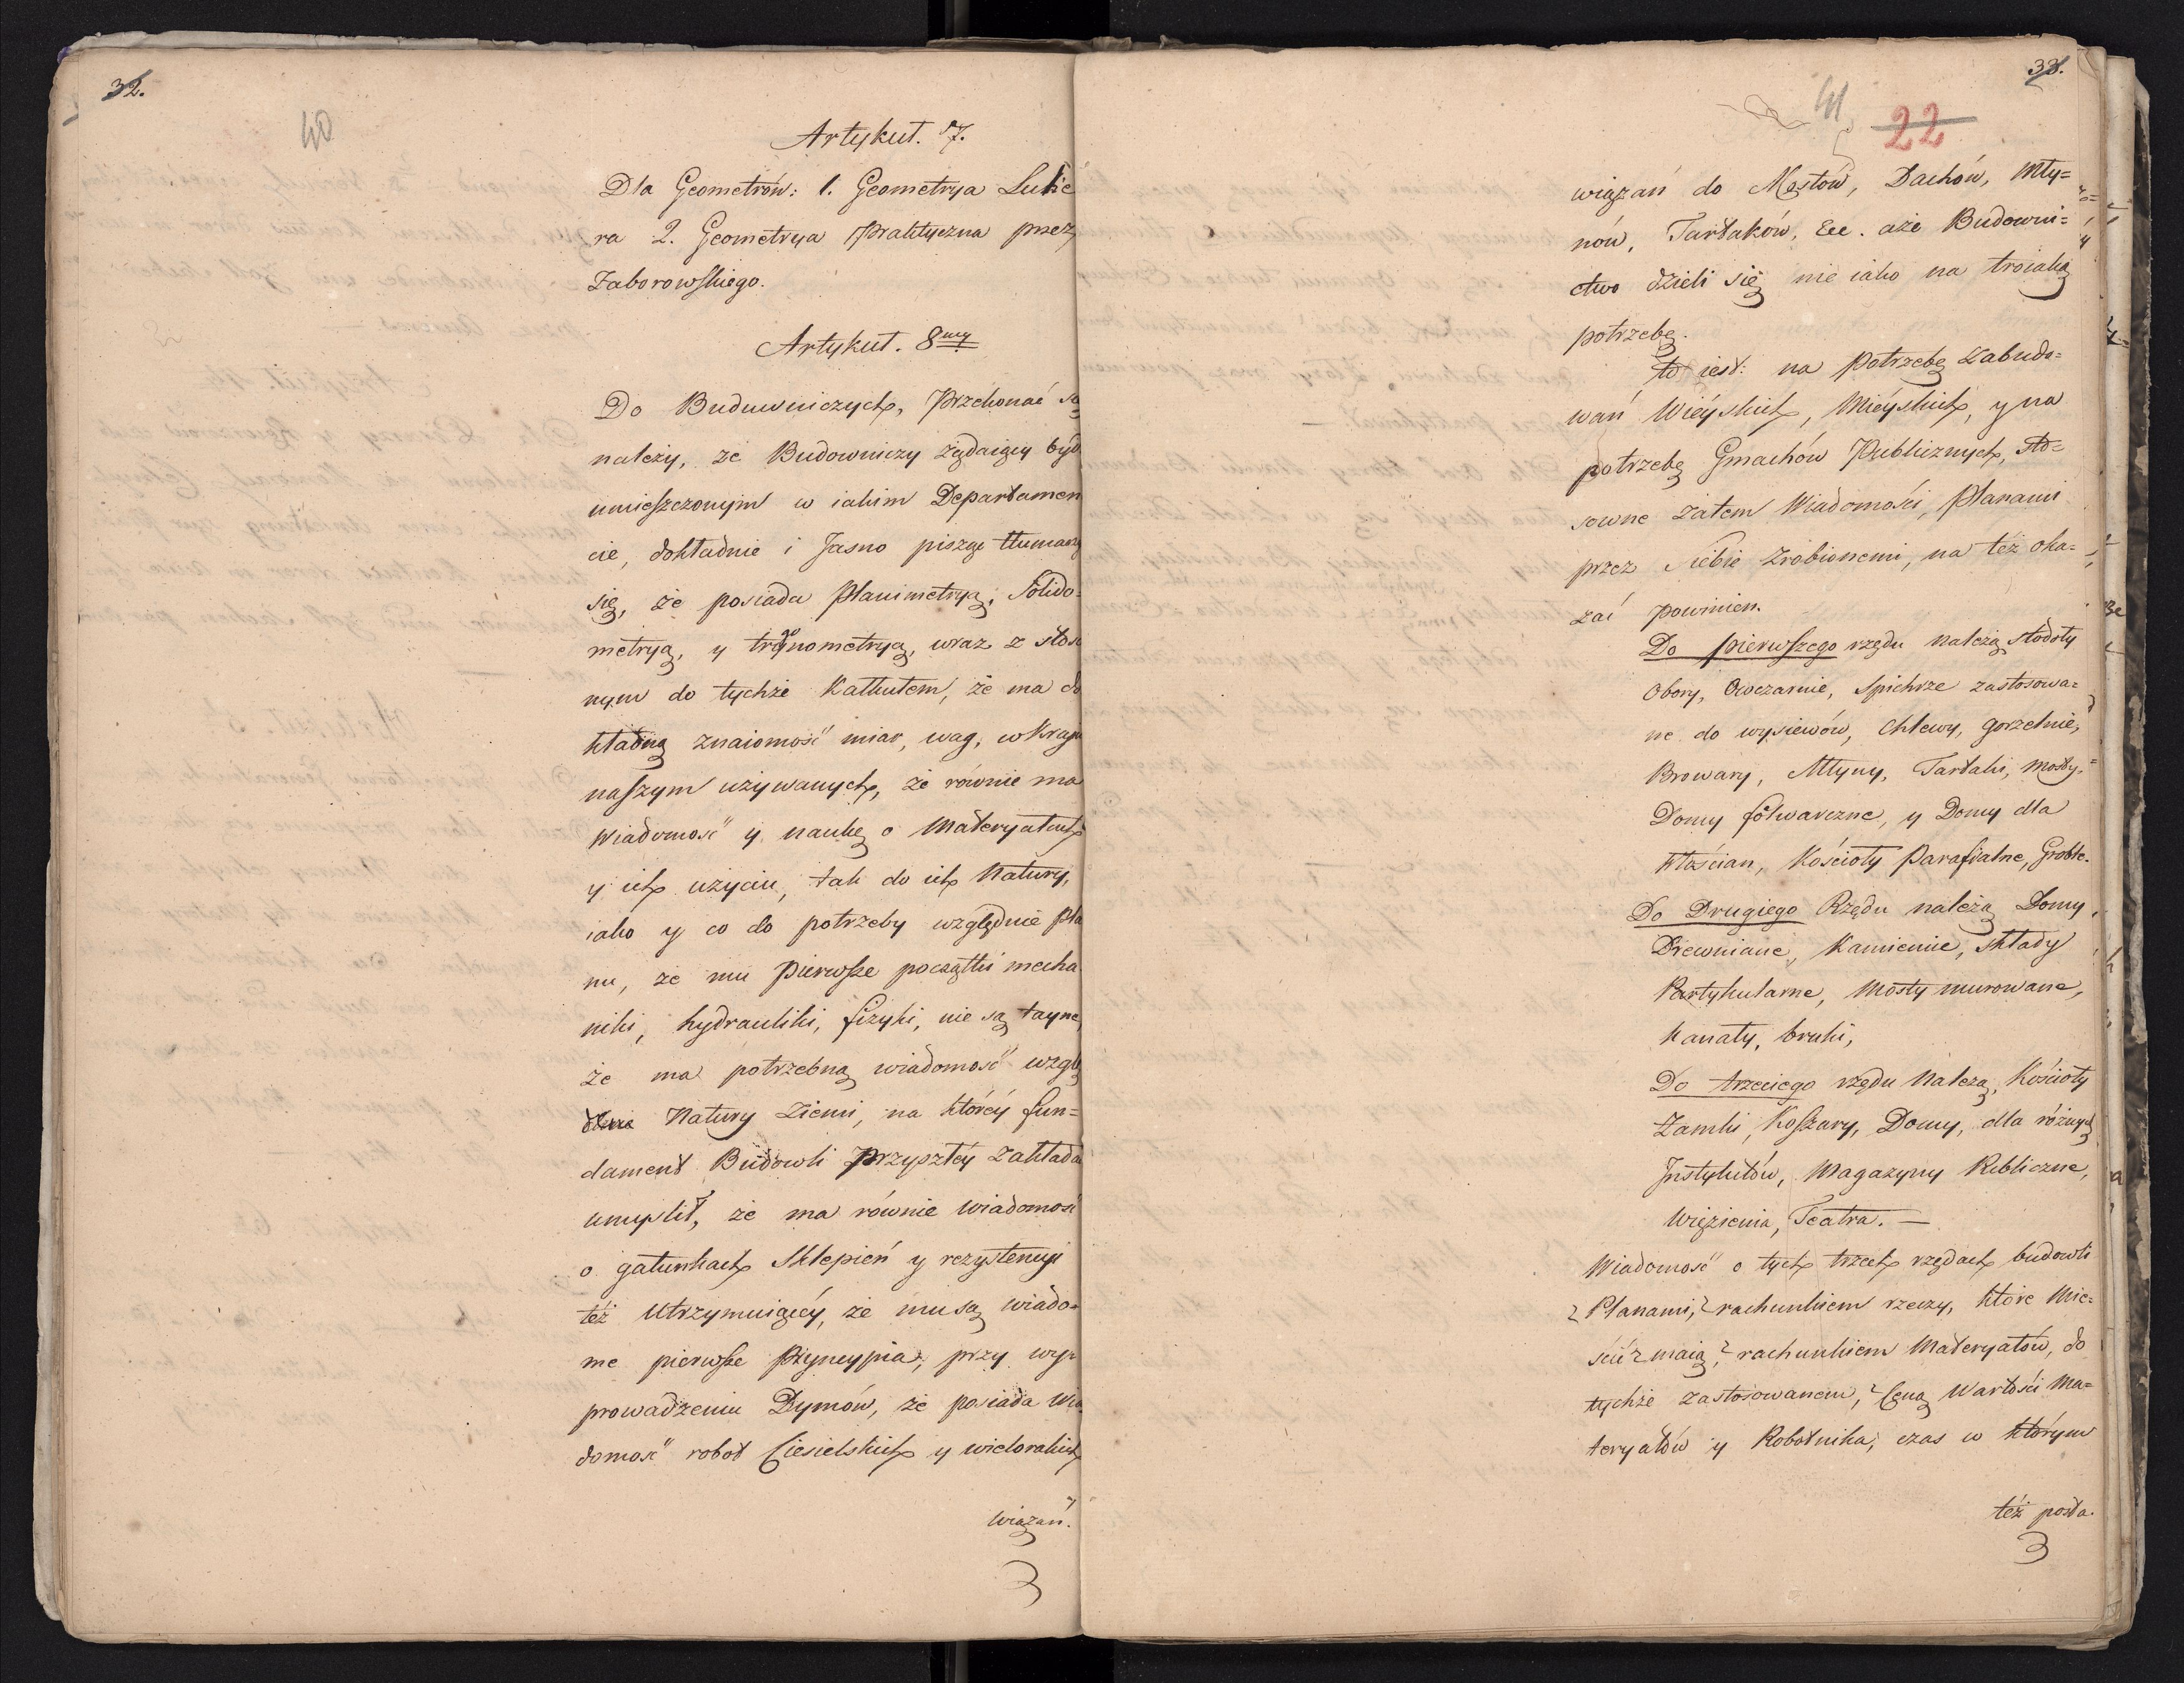 32.
40
Artykuł. 7.
Dla Geometrów: 1. Geometrya Luhie
ra 2. Geometrya Praktyczna przez
Zaborowskiego.
Artykuł. 8my
Do Buduwniczych, Przekonać się
należy, że Budowniczy żądaiący być
umieszczonym w iakim Departamen
cie, dokładnie i Jasno pisząc tłumaczy
się, że posiada Planimetryą, Solido-
metryą, y trygonometryą, wraz z stoso
nym do tychże Kalkułem, że ma do
kładną znaiomość miar, wag, w Kraju
naszym używanych, że równie ma
wiadomość y naukę o Materyałach
y ich użyciu, tak do ich Natury,
iako y co do potrzeby względnie Pla
nu, że mu pierwsze początki mecha
niki, hydrauliki, fizyki, nie są tayne,
że ma potrzebną wiadomość wzglę
dnie Natury Ziemi, na którey fun=
dament Budowli Przyszłéy zakładać
umyślił, że ma równie wiadomość
o gatunkach Sklepień y rezystencyi
téż Utrzymuiącéy, że mu są wiado=
me pierwsze Pryncypia, przy wy=
prowadzeniu Dymów, że posiada Wia
domość robót Ciesielskich y wielorakich
wiązań.
33.
41
22
wiązań do Mostów, Dachów, Mły=
nów, Tartaków, &c. aże Budowni=
ctwo dzieli się nie iako na troiaką
potrzebę.
to iest: na Potrzebę Zabudo=
wań Wieyskich, Mieyskich, y na
potrzebę Gmachów Publicznych, sto=
sowne zatem Wiadomości, Planami
przez siebie zrobionemi, na też oka=
zać powinien.
Do pierwszego rzędu należą, stodoły
Obory, Owczarnie, Spichrze zastosowa=
ne do wysiewów, Chlewy, gorzelnie,
Browary, Młyny, Tartaki, mosty,
Domy folwarczne, y Domy dla
Włościan, Kościoły Parafialne, Groble.
Do Drugiego Rzędu należą Domy,
Drewniane, Kamienne, składy
Partykularne, Mosty murowane,
Kanały, bruki,
Do trzeciego rzędu Należą, Kościoły
Zamki, Koszary, Domy, dla różnych
Instytutów, Magazyny Publiczne,
Więzienia, Teatra. —
Wiadomość o tych trzech rzędach budowli
z Planami, z rachunkiem rzeczy, które Mie=
ścić maią, z rachunkiem Materyałów, do
tychże zastosowanem, z Ceną Wartości Ma=
teryałów y Robotnika, czas w którym
téż posta.